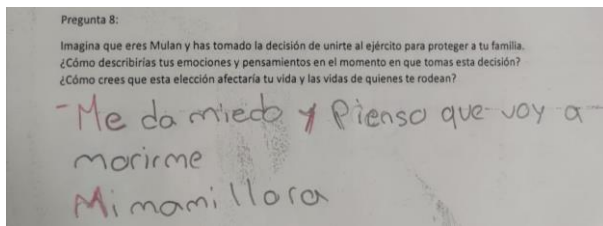 Pregunta 8:
Imagina que eres Mulan y has tomado la decisión de unirte al ejército para proteger a tu familia.
¿Cómo describirías tus emociones y pensamientos en el momento en que tomas esta decisión?
¿Cómo crees que esta elección afectaría tu vida y las vidas de quienes te rodean?
- Me da miedo y Pienso que voy a
morirme
Mi mami llora